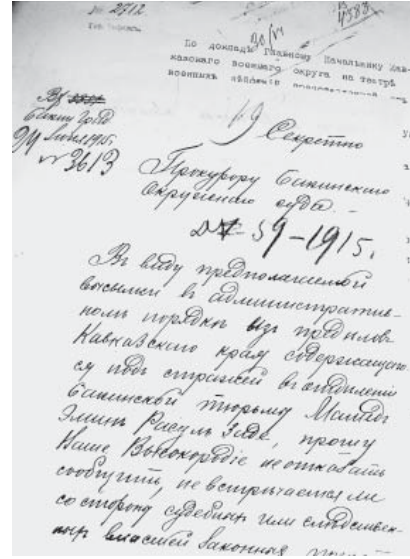 № 2712
4383
30/VI
По докладѣ Главному Начальнику Кав-
казскаго военнаго округа на театрѣ
военныхъ
69
Секретно
24 Июня 1915г.
№ 3613
Прокурору Бакинскаго
Окружнаго суда.
59-1915г.
Въ виду предполагаемой
высылки въ административ-
номъ порядкѣ изъ предѣловъ
Кавказскаго края содержащагося
подъ стражей въ отдѣленіи
Бакинской тюрьмы Мамедъ
Эминъ Расулъ Заде, прошу
Ваше Высокородіе не отказать
сообщить, не встрѣчается ли
со стороны судебныхъ или слѣдствен-
ныхъ властей законныхъ